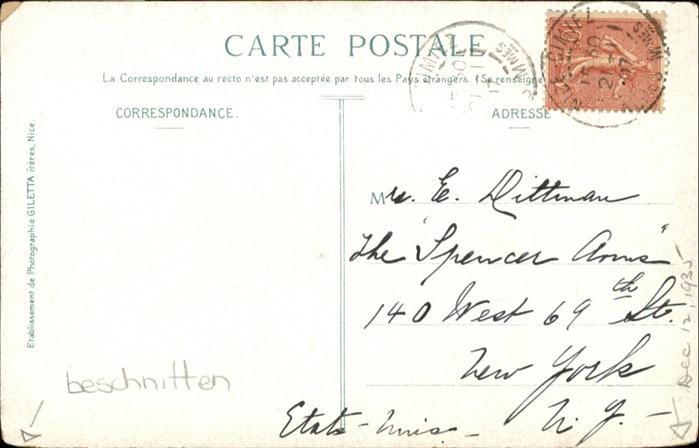 CARTE POSTALE
La Correspondance au recto n'est pas acceptée par tous les Pays étrangers. (Se renseigne
CORRESPONDANCE.
ADRESSE
Etablissement de Photographie GILETTA frères, Nice.
Mrs. E. Dittman
The "Spencer Arms"
140 West 69th St.
New York
Etats-Unis - N.Y.-
beschnitten
Dec 12, 1935